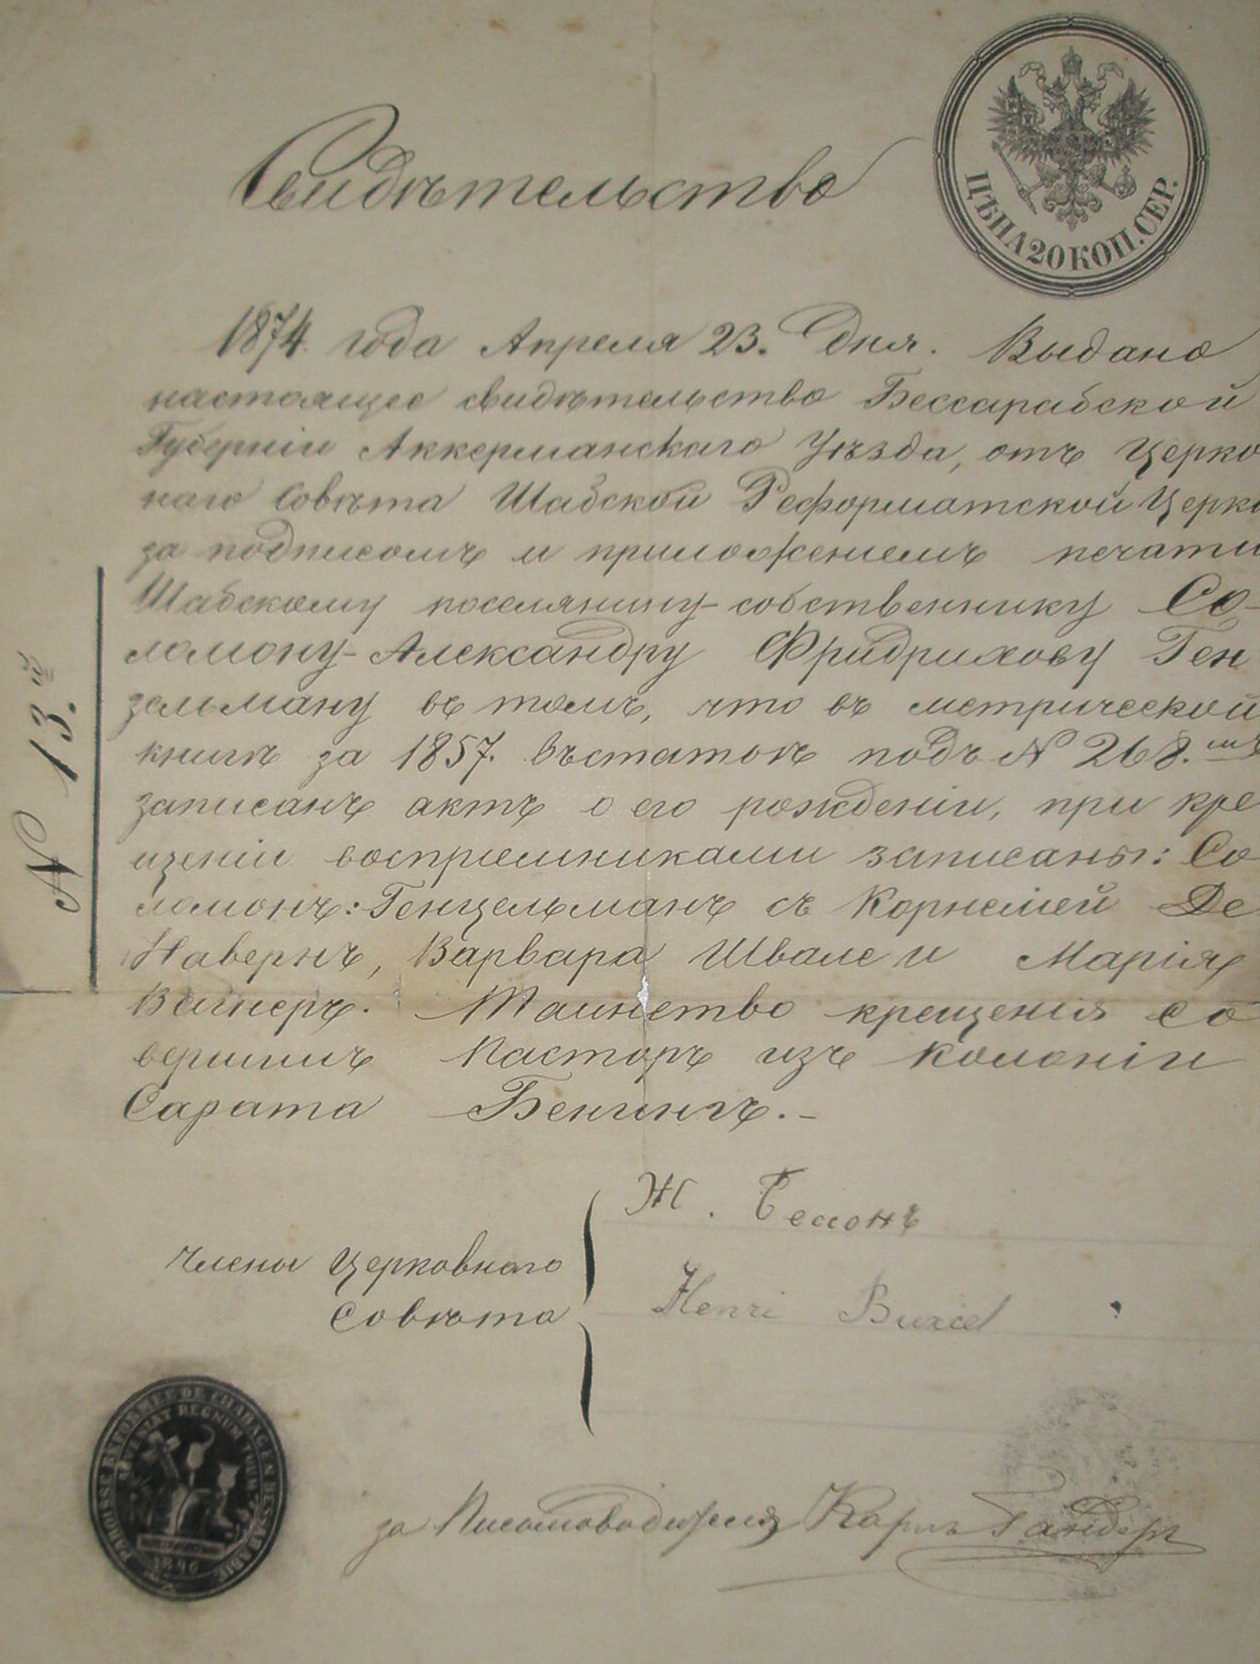 Свидѣтельство
ЦѢНА 20 КОП. СЕР.
1874 года Апреля 23. Дня. Выдано
настоящее свидѣтельство Бессарабской
Губерніи Аккерманскаго Уѣзда, отъ Церко
наго Совѣта Шабской Реформатской Церкв
за подписомъ и приложениемъ печати
Шабскому поселянину-собственнику Со-
ломону-Александру Фридрихову Ген
зельману въ томъ, что въ метрической
книгѣ за 1857. въ статьѣ подъ № 268.мъ
записанъ актъ о его рожденіи, при кре
щеніи восприемниками записаны: Со
ломонъ: Генцельманъ съ Корнелией Де
Навернъ, Варвара Швале и Марія
Вагнеръ. Таинство крещенія со
вершилъ Пасторъ изъ колоніи
Сарата Бенингъ. –
№ 13.й
Ж. Бесонъ
Члены Церковнаго
Совѣта
Henri Buxcel
PAROISSE REFORMEE DE CHABAG EN BESSARABIE
REGNUM TUUM
1846
за Писмоводителя Карлъ